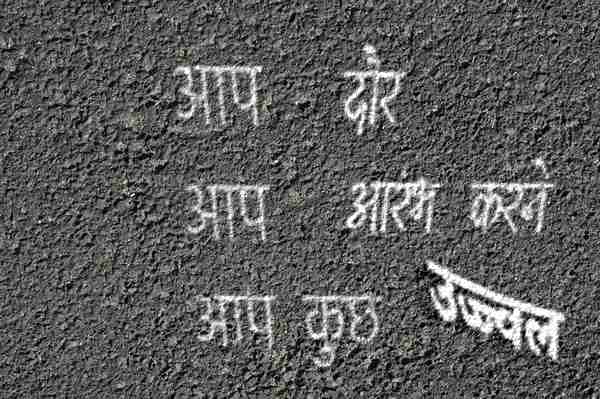 आप दौर
आप आरंभ करने
आप कुछ उज्ज्वल